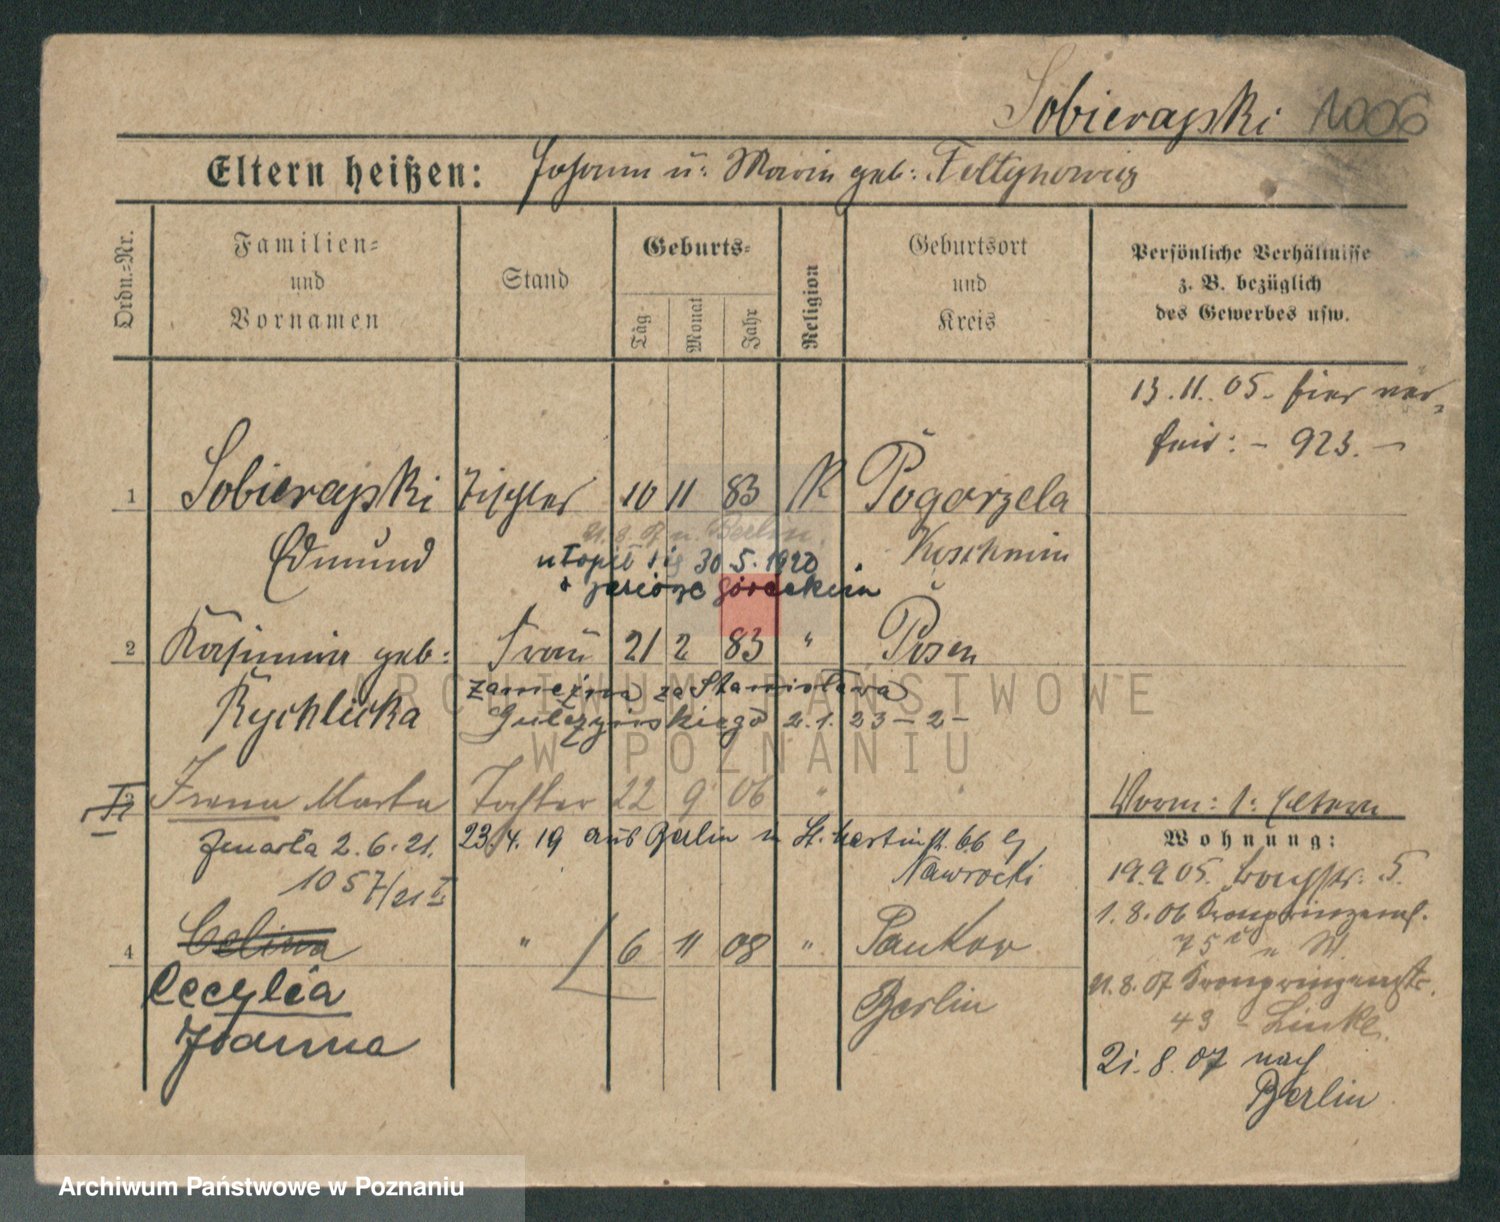 Sobierajski 1006
Eltern heißen: Johann u: Maria geb:
Ordn.=Nr.
Familien=
und
Vornamen
Stand
Geburts=
Tag
Monat
Jahr
Religion
Geburtsort
und
Kreis
Persönliche Verhältnisse
z. B. bezüglich
des Gewerbes usw.
13.11.05. hier ver-
heir: - 923. -
1 Sobierajski Tischler 10 11 83 K Pogorzela
21.8.07 n. Berlin.
Edmund utopił się 30.5.1920 Koschmin
w jeziorze góreckiem
2 Kasimira geb: Frau 21 2 83 " Posen
Rychlicka zamężna za Stanisława
Gulczyńskiego 2.1.23 - 2 -
3 Irena Marta Tochter 22 9 06 " "
zmarła 2.6.21. 23.4.19 aus Berlin n St. Martinstr. 66
1057/21 I Nawrocki
4 Celina " 6 11 08 " Pankow
Cecylia Berlin
Joanna
Vorm: s: Eltern
Wohnung:
19.9.05. 5.
1.8.06 Kronprinzenstr.
75
21.8.07 Kronprinzenstr.
43 - Linke
21.8.07 nach
Berlin
ARCHIWUM PAŃSTWOWE
W POZNANIU
Archiwum Państwowe w Poznaniu